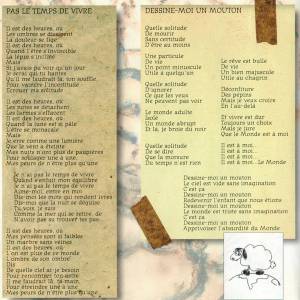 PAS LE TEMPS DE VIVRE
Il est des heures, où
Les ombres se dissipent
La douleur se fige
Il est des heures, où
Quand l'être s'invincible
La lèpre s'incline
Mais
Si j'avais pu voir qu'un jour
Je serai qui tu hantes
Qu'il me faudrait là, ton souffle
Pour vaincre l'incertitude
Écrouer ma solitude
Il est des heures, où
Les notes se détachent
Les larmes s'effacent
Il est des heures, où
Quand la lune est si pâle
L'être se monacale
Mais
J'erre comme une lumière
Que le vent a éteinte
Mes nuits n'ont plus de paupières
Pour soulager une à une
Mes peurs de n'être plus qu'une
Je n'ai pas le temps de vivre
Quand s'enfuit mon équilibre
Je n'ai pas le temps de vivre
Aime-moi, entre en moi
Dis-moi les mots qui rendent ivres
Dis-moi que la nuit se déguise
Comme la mer qui se retire, de
N'avoir pas su trouver ses pas...
Il est des heures, où
Mes pensées sont si faibles
Un marbre sans veines
Il est des heures, où
L'on est plus de ce monde
L'ombre de son ombre
Dis
De quelle clef ai-je besoin
Pour rencontrer ton astre
Il me faudrait là, ta main,
Pour étreindre une à une
Mes peurs de n'être plus qu'une
DESSINE-MOI UN MOUTON
Quelle solitude
De mourir
Sans certitude
D'être au moins
Une particule
De vie
Un point minuscule
Utile à quelqu'un
Quelle solitude
D'ignorer
Ce que les yeux
Ne peuvent pas voir
Le monde adulte
Isolé
Un monde abrupt
Et là, je broie du noir
Quelle solitude
De se dire
Que la morsure
Du temps n'est rien
Le rêve est bulle
De vie
Un bien majuscule
Utile au chagrin
Déconfiture
Des pépins
Mais je veux croire
En l'au-delà
Et vivre est dur
Toujours un choix
Mais je jure
Que le Monde est à moi
Il est à moi...
Il est à moi...
Il est à moi... Le Monde
Dessine-moi un mouton
Le ciel est vide sans imagination
C'est ça
Dessine-moi un mouton
Redevenir l'enfant que nous étions
Dessine-moi un mouton
Le monde est triste sans imagination
C'est ça
Dessine-moi un mouton
Apprivoiser l'absurdité du Monde